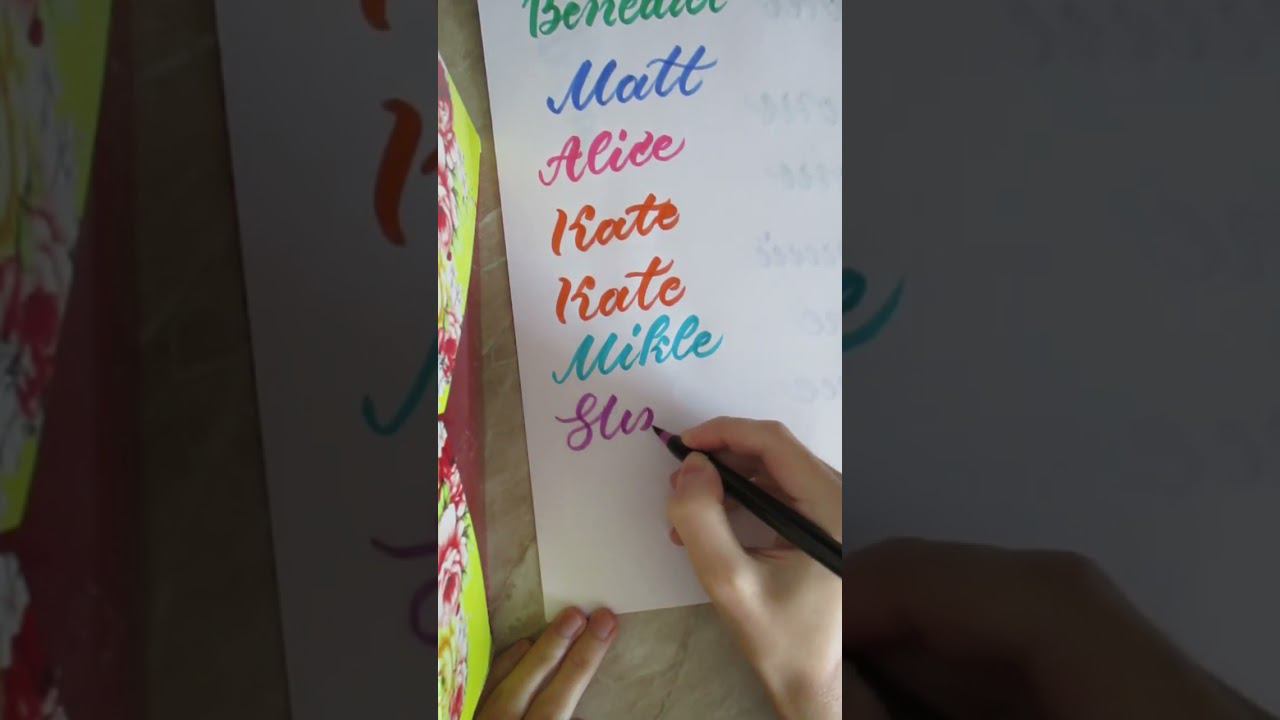 Benedict
Matt
Alice
Kate
Kate
Mikle